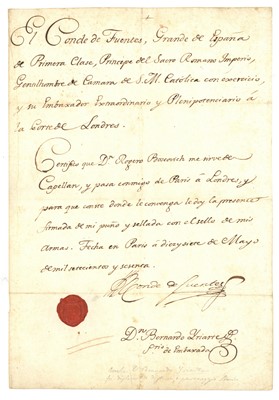 El Conde de Fuentes, Grande de España
de Primera Clase, Principe del Sacro Romano Imperio,
Gentilhombre de Camara de S. M. Católica con exercicio,
y su Embaxador Extraordinario y Plenipotenciario â
la Corte de Londres.
Certifico que Dn. Rogero me sirve de
Capellan, y pasa conmigo de Paris â Londres, y
para que conste donde le convenga le doy la presente
firmada de mi puño y sellada con el sello de mis
Armas. Fecha en Paris â diez y siete de Mayo
de mil setecientos y sesenta.
El Conde de Fuentes
Dn. Bernardo Yriarte
Srio de Embaxada